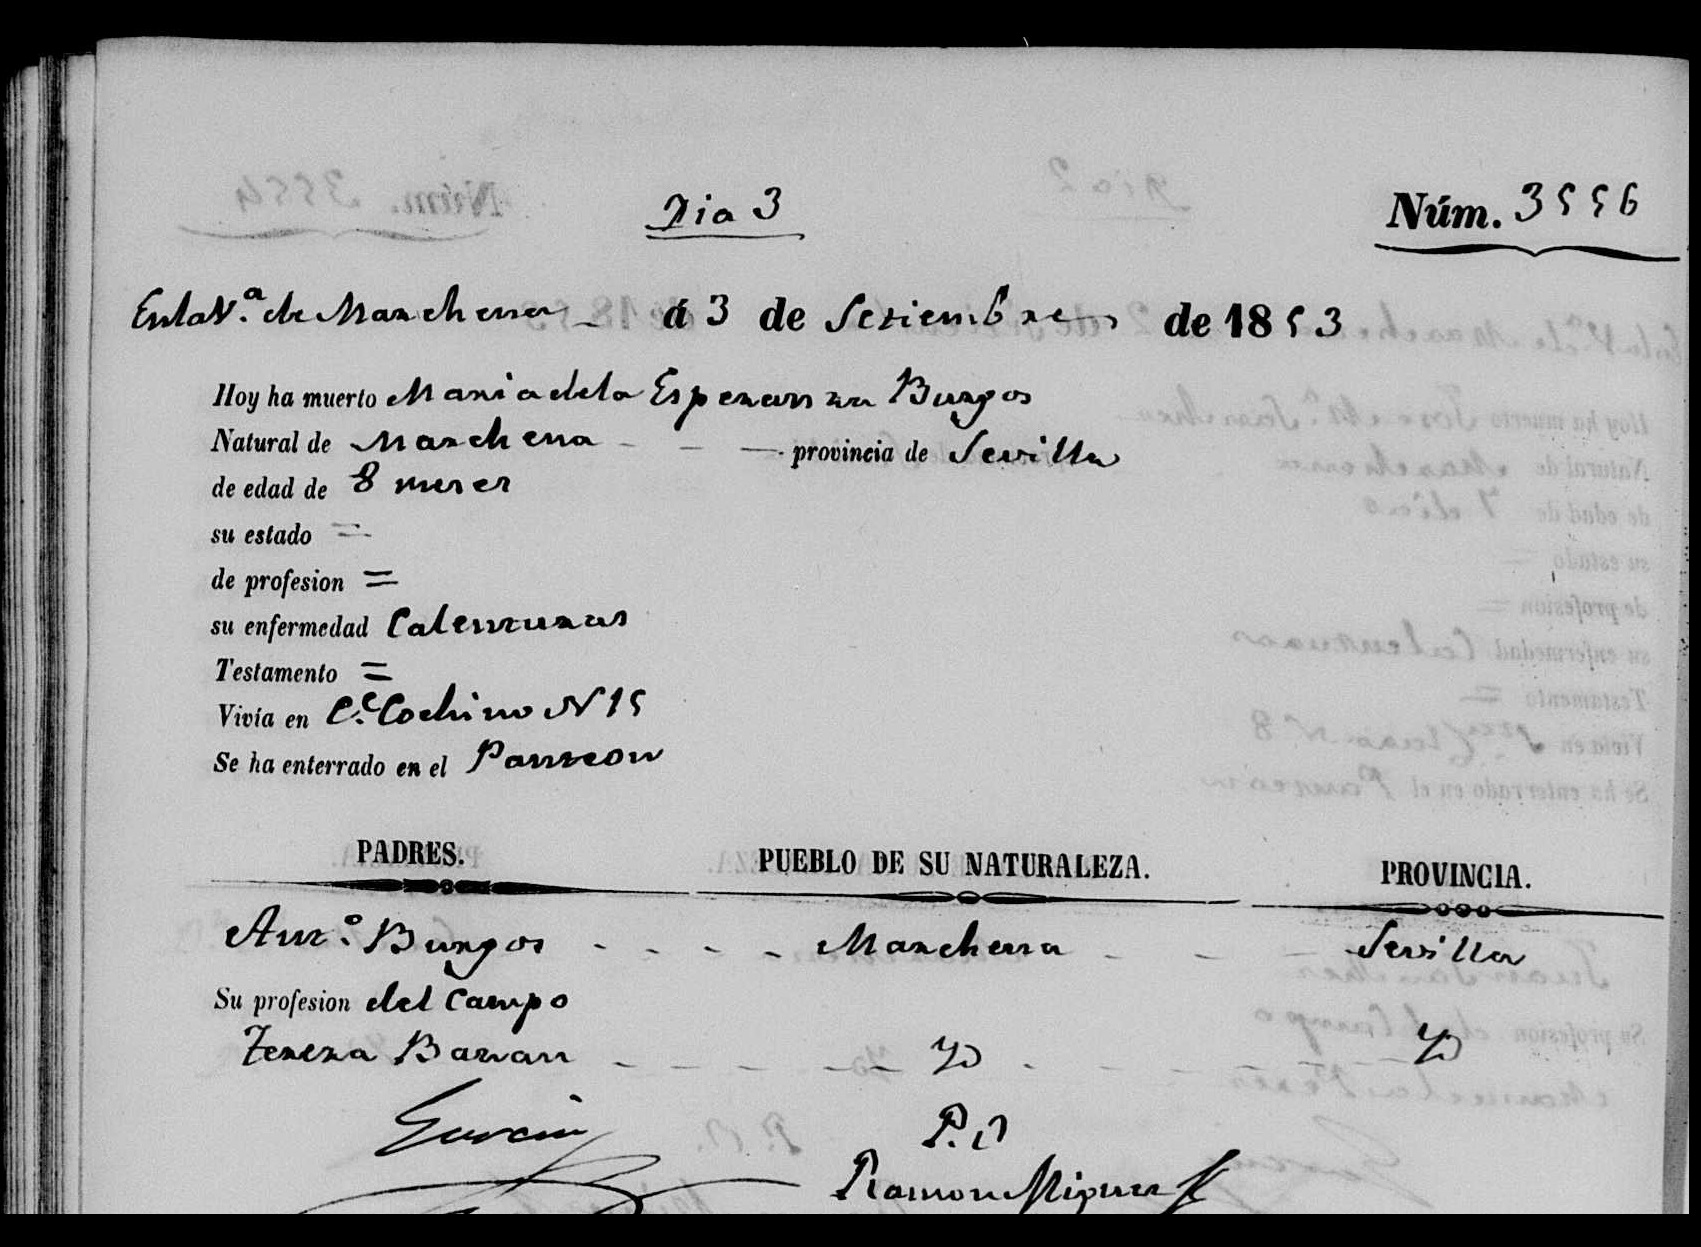 Dia 3
Núm. 3556
En la V.ª de Marchena á 3 de Setiembre de 1853
Hoy ha muerto Maria de la Esperanza Burgos
Natural de Marchena - - provincia de Sevilla
de edad de 8 meses
su estado =
de profesion =
su enfermedad Calenturas
Testamento =
Vivía en C.e Cochino N 15
Se ha enterrado en el Panteon
PADRES. PUEBLO DE SU NATURALEZA. PROVINCIA.
Ant.º Burgos - - - - Marchena - - - Sevilla
Su profesion del Campo
Tereza - - - - - - Yd - - - - - Yd
Garcia P. O
Ramon Miguez